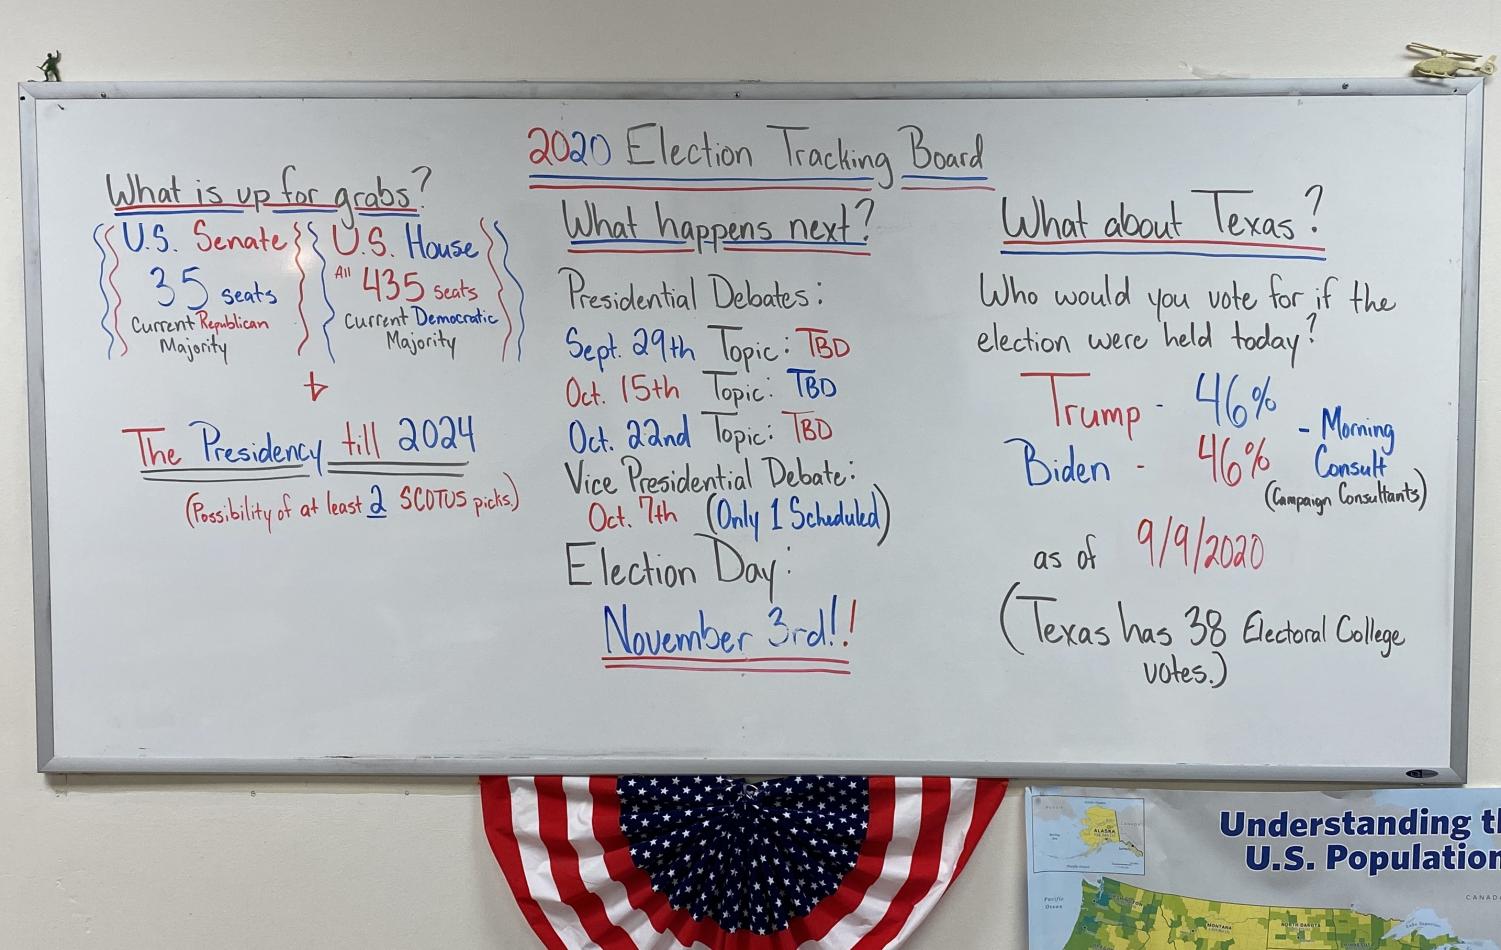 2020 Election Tracking Board
What is up for grabs?
U.S. Senate
35 seats
Current Republican
Majority
U.S. House
All 435 seats
Current Democratic
Majority
+
The Presidency till 2024
(Possibility of at least 2 SCOTUS picks.)
What happens next?
Presidential Debates:
Sept. 29th Topic: TBD
Oct. 15th Topic: TBD
Oct. 22nd Topic: TBD
Vice Presidential Debate:
Oct. 7th (Only 1 Scheduled)
Election Day:
November 3rd!!
What about Texas?
Who would you vote for if the
election were held today?
Trump - 46%
Biden - 46%
- Morning
Consult
(Campaign Consultants)
as of 9/9/2020
(Texas has 38 Electoral College
votes.)
Understanding t
U.S. Population
ALASKA
CANAD
Pacific
Ocean
WASHINGTON
MONTANA
NORTH DAKOTA